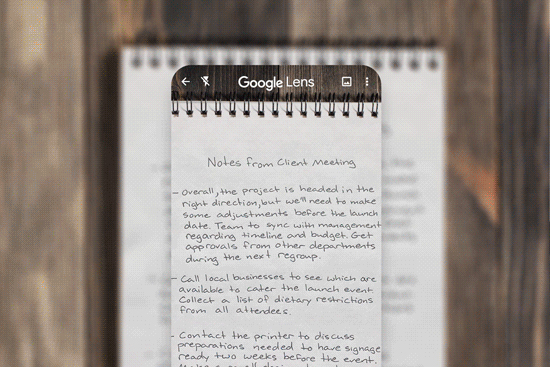 Google Lens
Notes from Client Meeting
- Overall, the project is headed in the
right direction, but we'll need to make
some adjustments before the launch
date. Team to sync with management
regarding timeline and budget. Get
approvals from other departments
during the next regroup.
- Call local businesses to see which are
available to cater the launch event
Collect a list of dietary restrictions
from all attendees.
- Contact the printer to discuss
preparations needed to have signage
ready two weeks before the event.